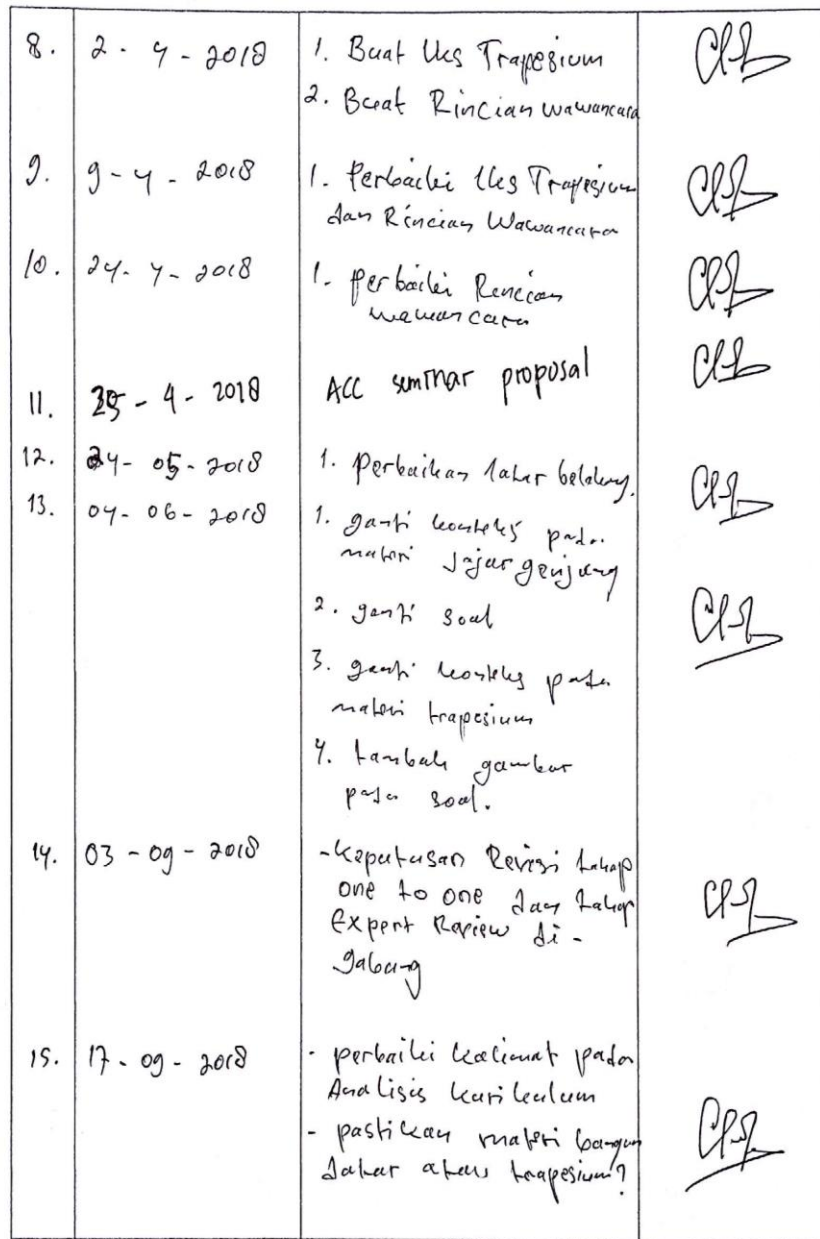 8. 2 - 4 - 2018 1. Buat LKS Trapesium
2. Buat Rincian wawancara
9. 9 - 4 - 2018 1. Perbaiki LKS Trapesium
dan Rincian Wawancara
10. 24 - 4 - 2018 1. Perbaiki Rincian
wawancara
11. 25 - 4 - 2018 ACC seminar proposal
12. 24 - 05 - 2018 1. Perbaikan latar belakang.
13. 04 - 06 - 2018 1. ganti konteks pada
materi jajar genjang
2. ganti soal
3. ganti konteks pada
materi trapesium
4. tambah gambar
pada soal.
14. 03 - 09 - 2018 - Keputusan Revisi tahap
one to one dan tahap
Expert Review di -
gabung
15. 17 - 09 - 2018 - perbaiki kalimat pada
Analisis kurikulum
- pastikan materi bangun
datar atau trapesium?